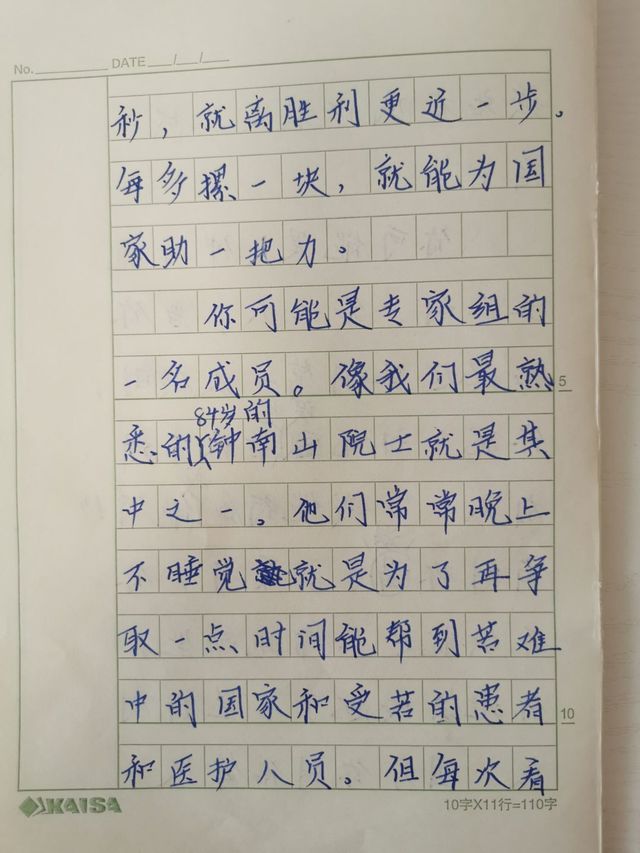 No. DATE / /
秒，就离胜利更近一步。
每多摞一块，就能为国
家助一把力。
你可能是专家组的
一名成员。像我们最熟
5
84岁的
悉的钟南山院士就是其
中之一。他们常常晚上
不睡觉就是为了再争
取一点时间能帮到苦难
中的国家和受苦的患者
10
和医护人员。但每次看
KAISA
10字X11行=110字